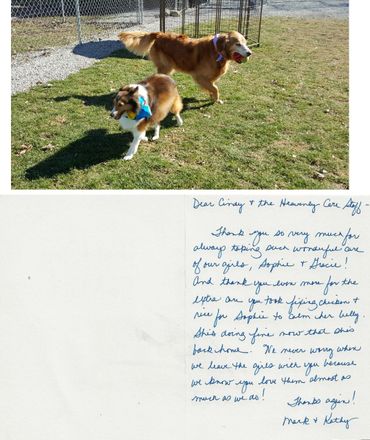 Dear Cindy & the Heavenly Care Staff -
Thank you so very much for
always taking such wonderful care
of our girls, Sophie & Gracie!
And thank you even more for the
extra care you took fixing chicken &
rice for Sophie to calm her belly.
She's doing fine now that she's
back home. We never worry when
we leave the girls with you because
we know you love them almost as
much as we do!
Thanks again!
Mark & Kathy